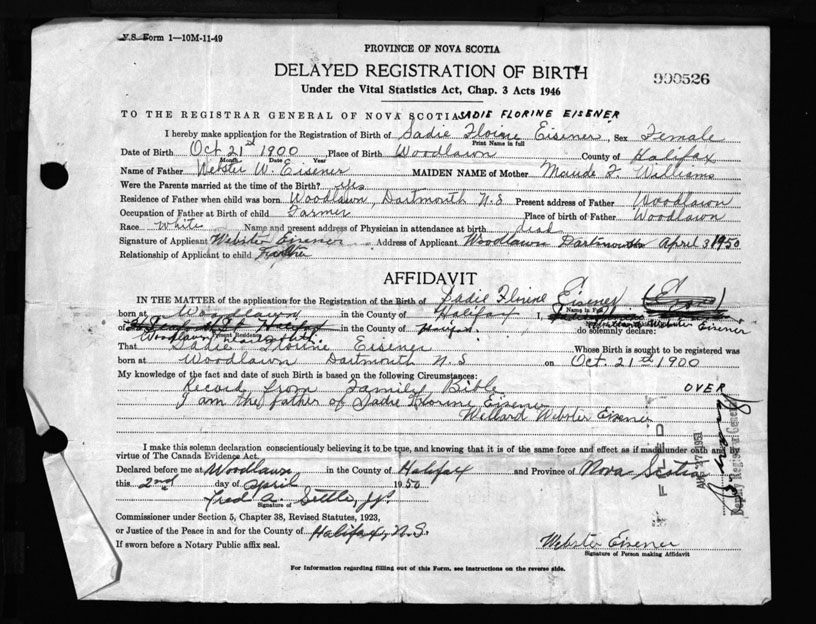 V.S. Form 1—10M-11-49
PROVINCE OF NOVA SCOTIA
DELAYED REGISTRATION OF BIRTH
900526
Under the Vital Statistics Act, Chap. 3 Acts 1946
TO THE REGISTRAR GENERAL OF NOVA SCOTIA SADIE FLORINE EISENER
I hereby make application for the Registration of Birth of Sadie Florine Eisener, Sex Female
Print Name in full
Date of Birth Oct 21st 1900 Place of Birth Woodlawn County of Halifax
Month Day Year
Name of Father Webster W. Eisener MAIDEN NAME of Mother Maude F. Williams
Were the Parents married at the time of the Birth? yes
Residence of Father when child was born Woodlawn, Dartmouth N.S Present address of Father Woodlawn
Occupation of Father at Birth of child Farmer Place of birth of Father Woodlawn
Race White Name and present address of Physician in attendance at birth dead
Signature of Applicant Webster Eisener Address of Applicant Woodlawn Dartmouth April 3 1950
Relationship of Applicant to child Father
AFFIDAVIT
IN THE MATTER of the application for the Registration of the Birth of Sadie Florine Eisener
Name in Full
born at Woodlawn in the County of Halifax I,
of Halifax in the County of Halifax Willard Webster Eisener do solemnly declare:
Present Residence
Woodlawn Dartmouth
That Sadie Florine Eisener Whose Birth is sought to be registered was
born at Woodlawn Dartmouth N.S on Oct. 21st 1900
My knowledge of the fact and date of such Birth is based on the following Circumstances:
Record from Family Bible OVER
I am the father of Sadie Florine Eisener
Willard Webster Eisener
I make this solemn declaration conscientiously believing it to be true, and knowing that it is of the same force and effect as if made under oath and by
virtue of The Canada Evidence Act.
Declared before me at Woodlawn in the County of Halifax and Province of Nova Scotia
this 2nd day of April 1950
Fred A. Settle, J.P.
Signature of
Commissioner under Section 5, Chapter 38, Revised Statutes, 1923,
or Justice of the Peace in and for the County of Halifax, N.S.
If sworn before a Notary Public affix seal.
Webster Eisener
Signature of Person making Affidavit
For information regarding filling out of this Form, see instructions on the reverse side.
FILED
1951
Deputy Registrar General